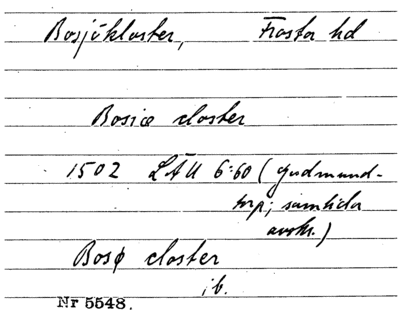 Bosjökloster, Frosta hd
Bosiæ closter
1502 LÄU 6:60 (Gudmund-
torp; samtida
avskr.)
Bosø closter
ib.
Nr 5548.